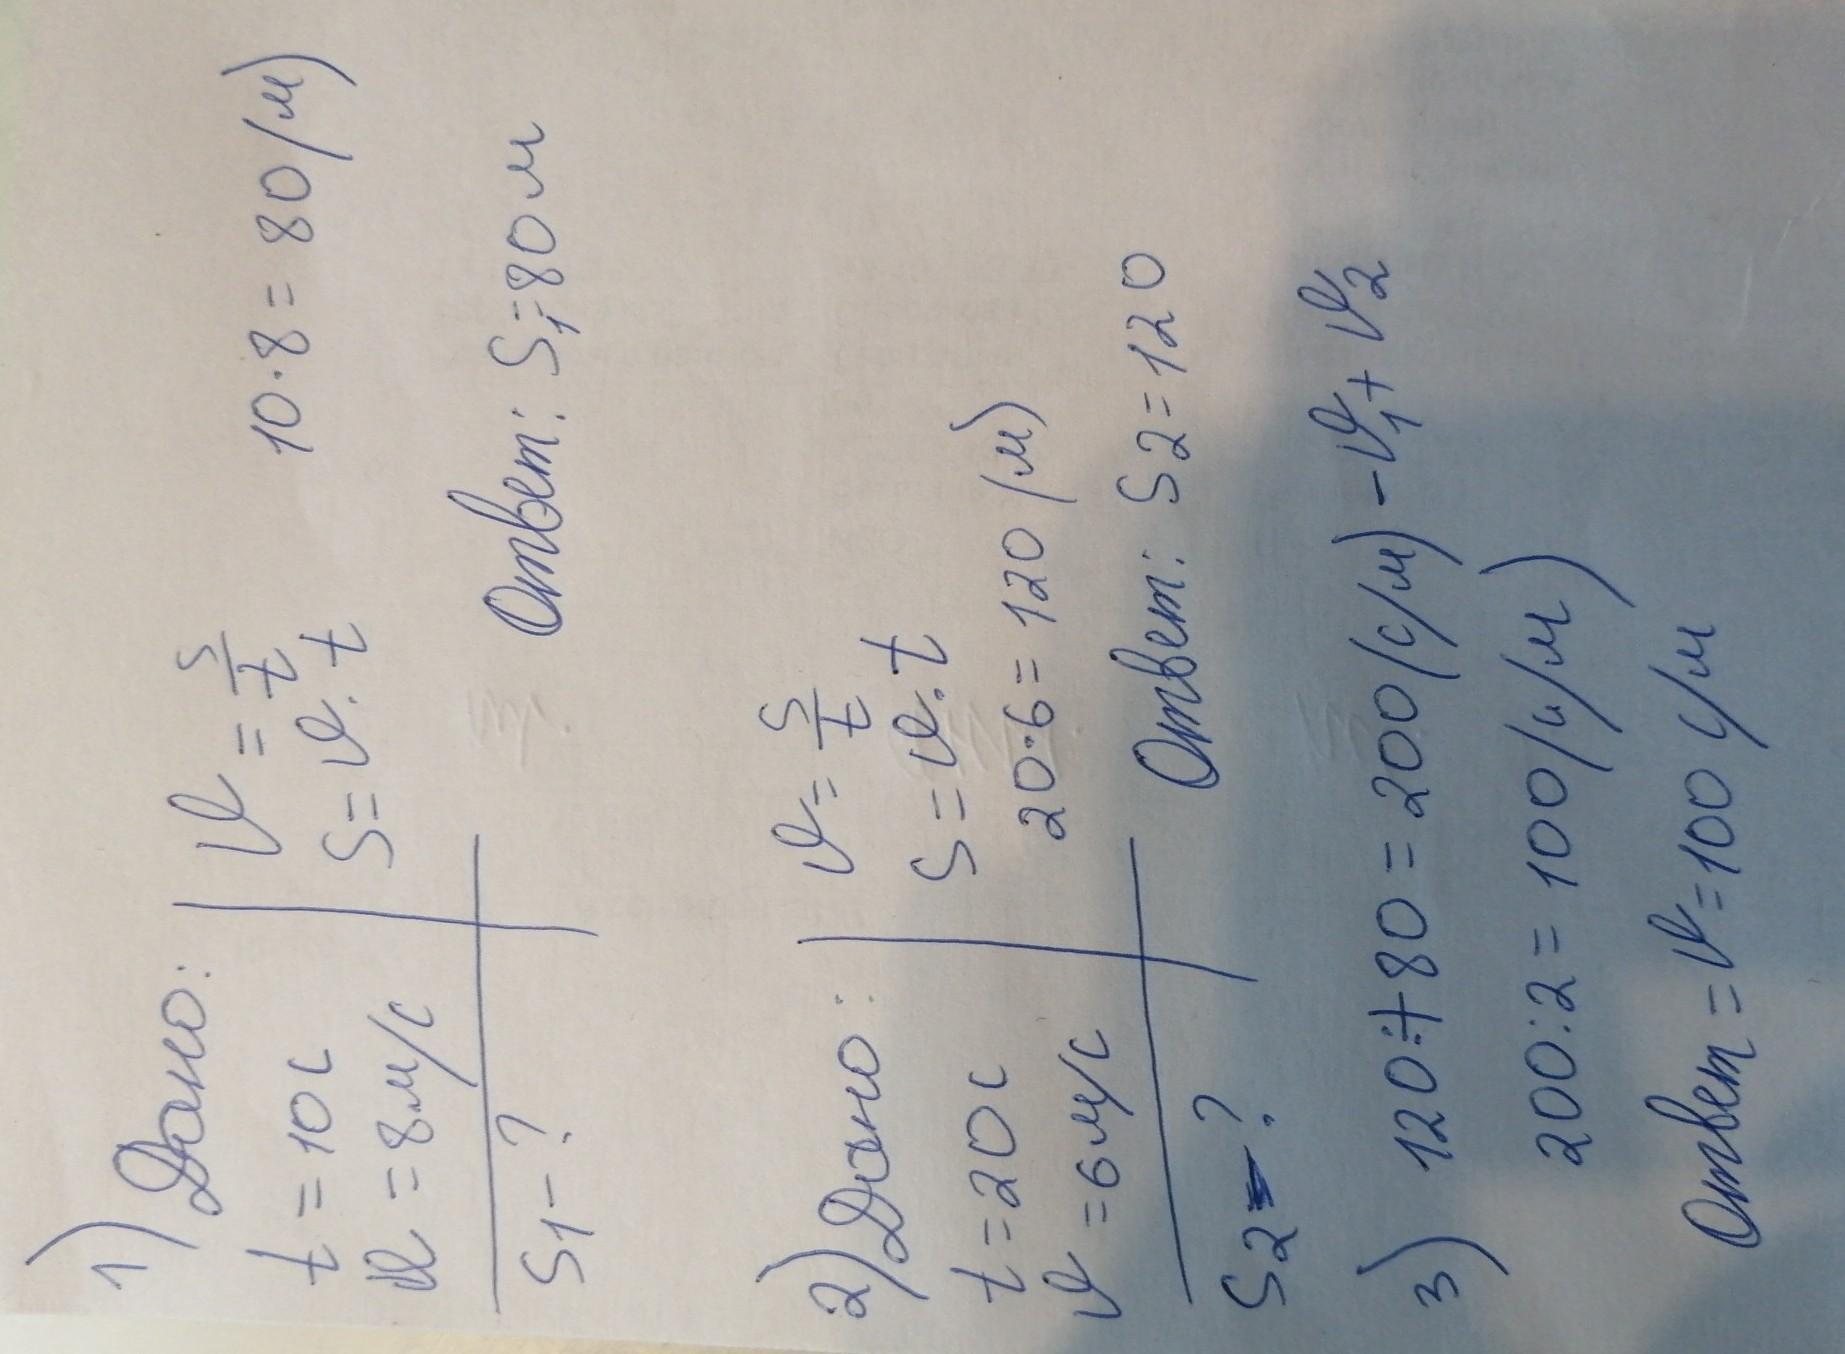 1) Дано:
t = 10 с
υ = 8 м/с
S1 - ?
υ = S/t
S = υ · t
10 · 8 = 80 (м)
Ответ: S1 = 80 м
2) Дано:
t = 20 с
υ = 6 м/с
S2 - ?
υ = S/t
S = υ · t
20 · 6 = 120 (м)
Ответ: S2 = 120
3) 120 + 80 = 200 (с/м) - υ1 + υ2
200 : 2 = 100 (с/м)
Ответ = υ = 100 с/м